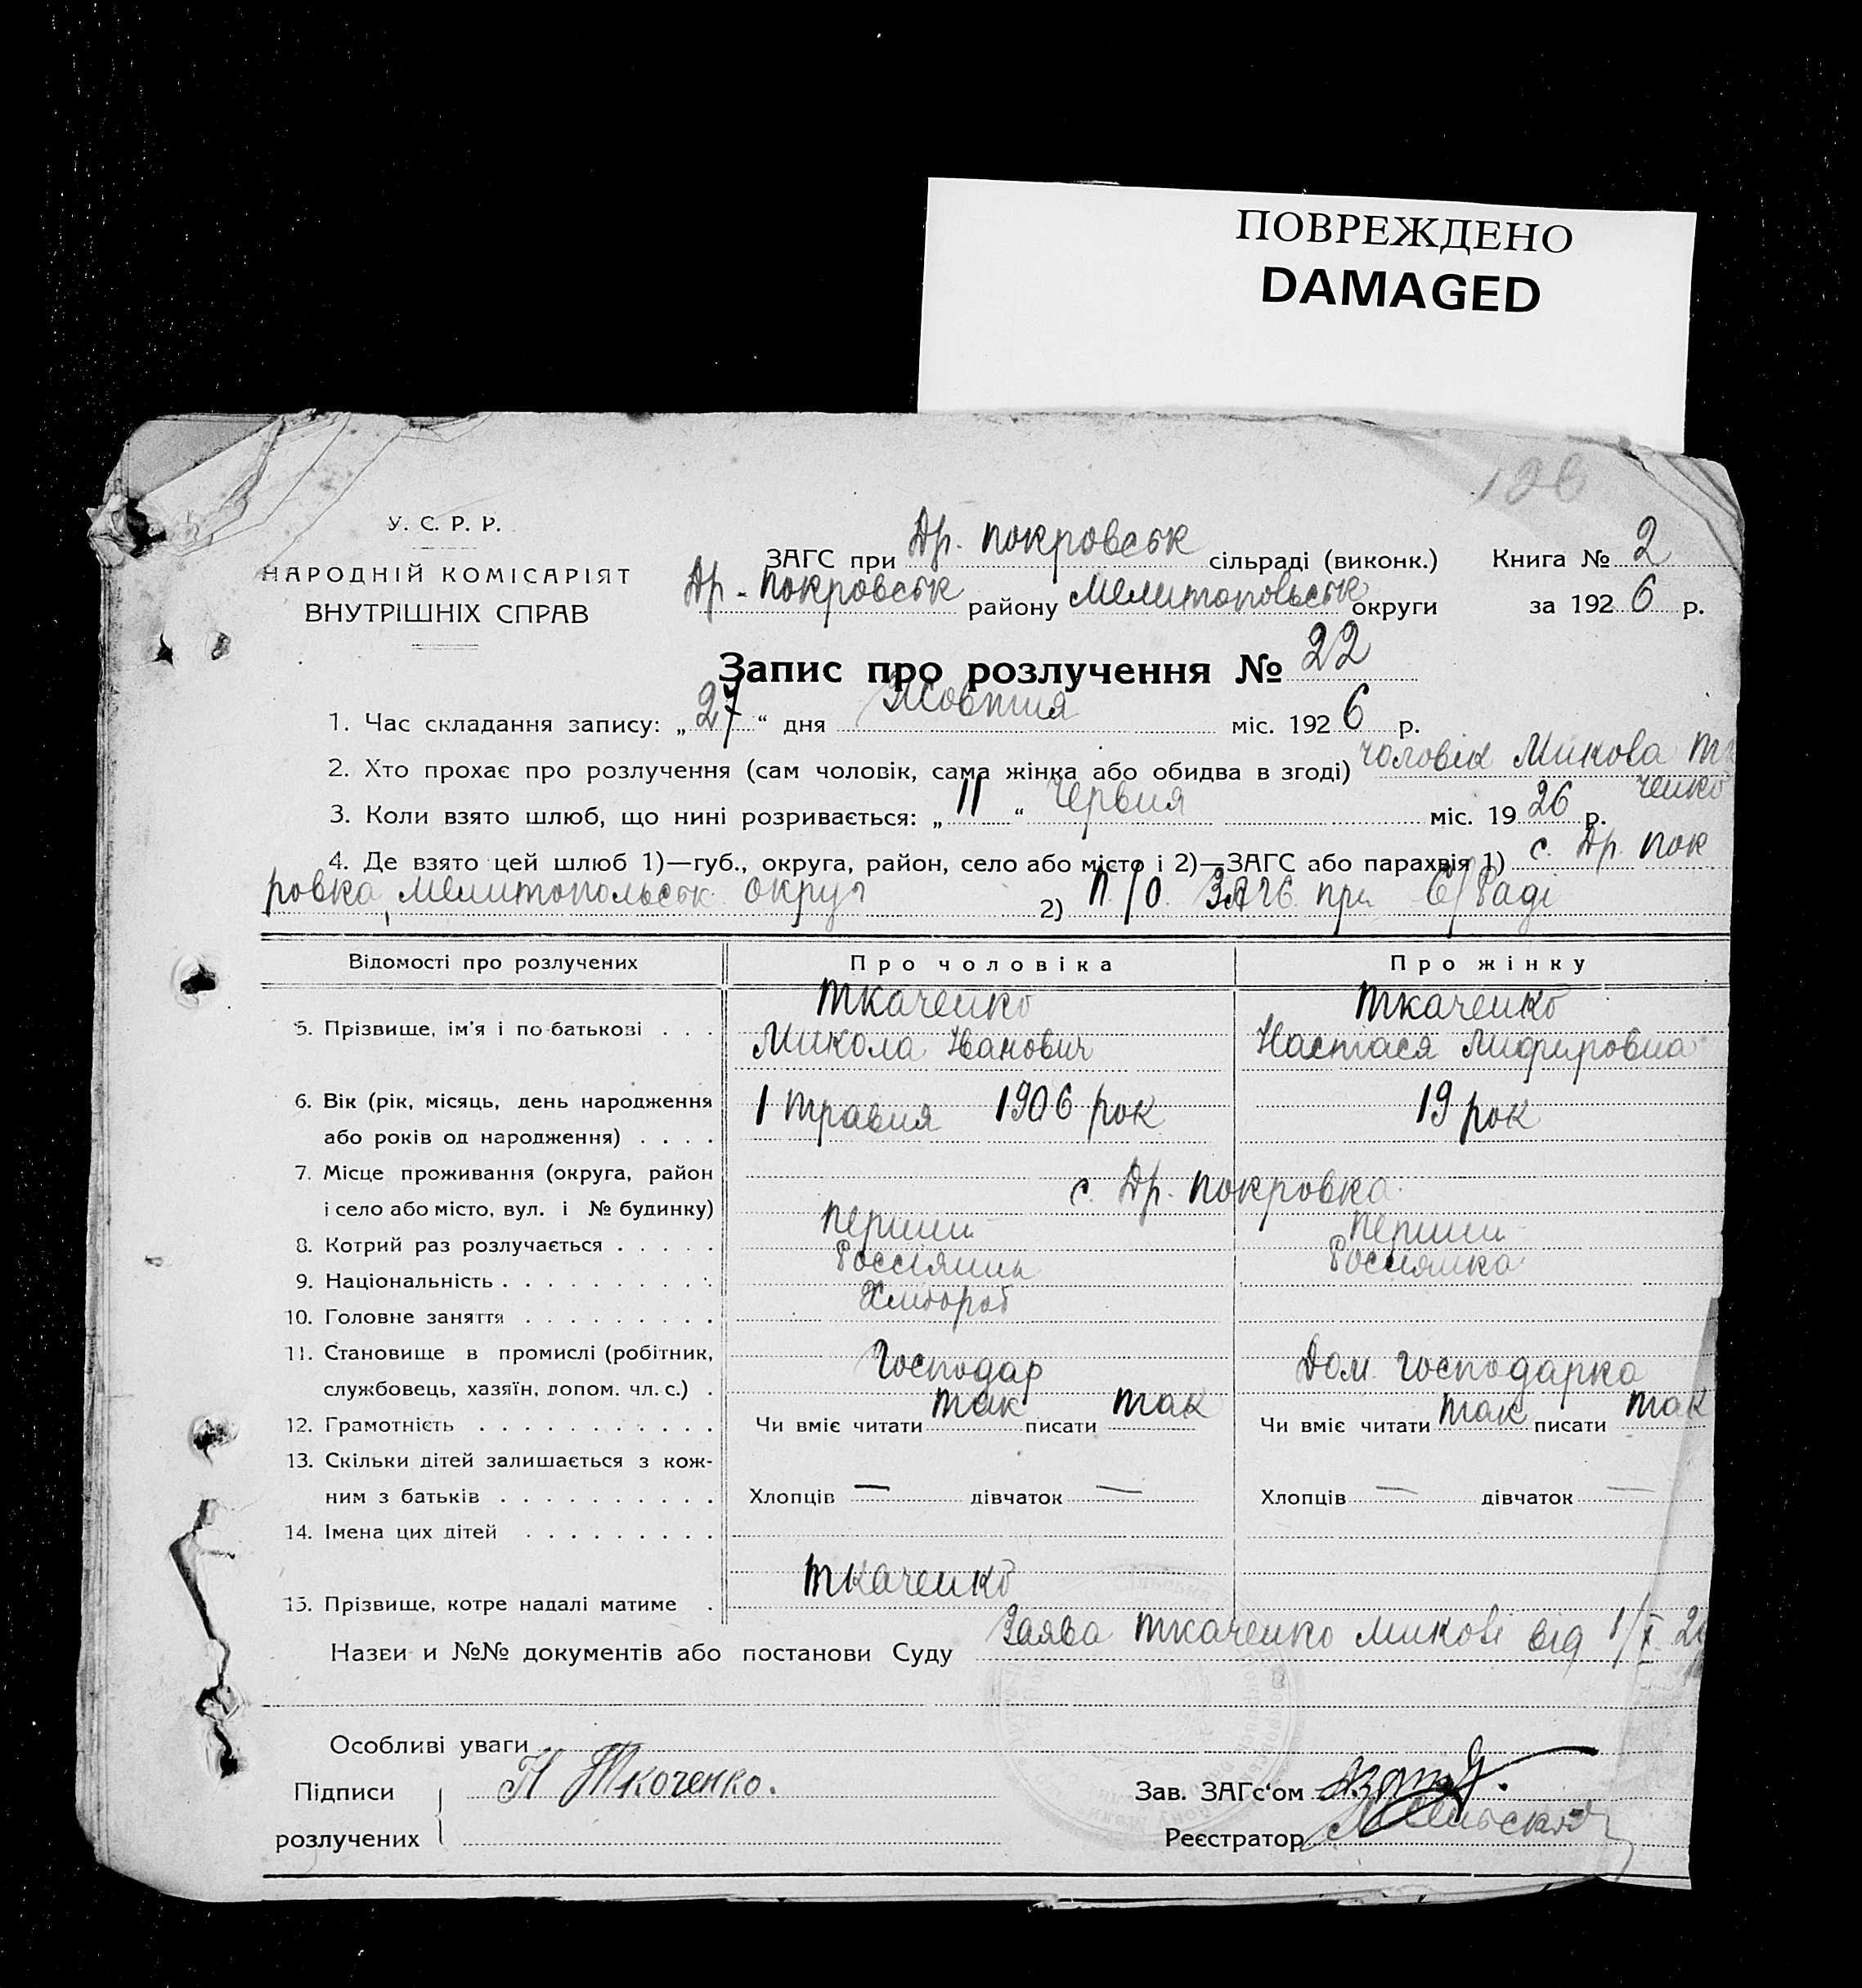 ПОВРЕЖДЕНО
DAMAGED
126
У. С. Р. Р.
НАРОДНІЙ КОМІСАРІЯТ
ВНУТРІШНІХ СПРАВ
ЗАГС при Др. Покровськ сільраді (виконк.) Книга № 2
Др-Покровськ району Мелитопольськ округи за 1926 р.
Запис про розлучення № 22
1. Час складання запису: „27“ дня Жовтня міс. 1926 р.
2. Хто прохає про розлучення (сам чоловік, сама жінка або обидва в згоді) чоловік Микола Тк
ченко
3. Коли взято шлюб, що нині розривається: „11“ Червня міс. 1926 р.
4. Де взято цей шлюб 1)—губ., округа, район, село або місто і 2)—ЗАГС або парахвія 1) с. Др. Пок
ровка, Мелитопольськ округ 2) П/О. ЗАГС при С/Раді
Відомості про розлучених Про чоловіка Про жінку
Ткаченко Ткаченко
5. Прізвище, ім'я і по батькові . . . Микола Іванович Настася
6. Вік (рік, місяць, день народження 1 Травня 1906 рок 19 рок
або років од народження) . . . .
7. Місце проживання (округа, район
і село або місто, вул. і № будинку) с. Др. Покровка
8. Котрий раз розлучається . . . . . Перший Перший
9. Національність . . . . . . . . . . Россіянин Россиянка
10. Головне заняття . . . . . . . . . Хлібороб
11. Становище в промислі (робітник, Господар Дом. господарка
службовець, хазяїн, допом. чл. с.) .
12. Грамотність . . . . . . . . . . . Чи вміє читати так писати так Чи вміє читати так писати так
13. Скільки дітей залишається з кож-
ним з батьків . . . . . . . . . . Хлопців — дівчаток — Хлопців — дівчаток —
14. Імена цих дітей . . . . . . . . .
15. Прізвище, котре надалі матиме . Ткаченко
Назви и №№ документів або постанови Суду Заява Ткаченко Микол від 1/X 2
Особливі уваги
Підписи Н Ткоченко. Зав. ЗАГс'ом
розлучених Реєстратор